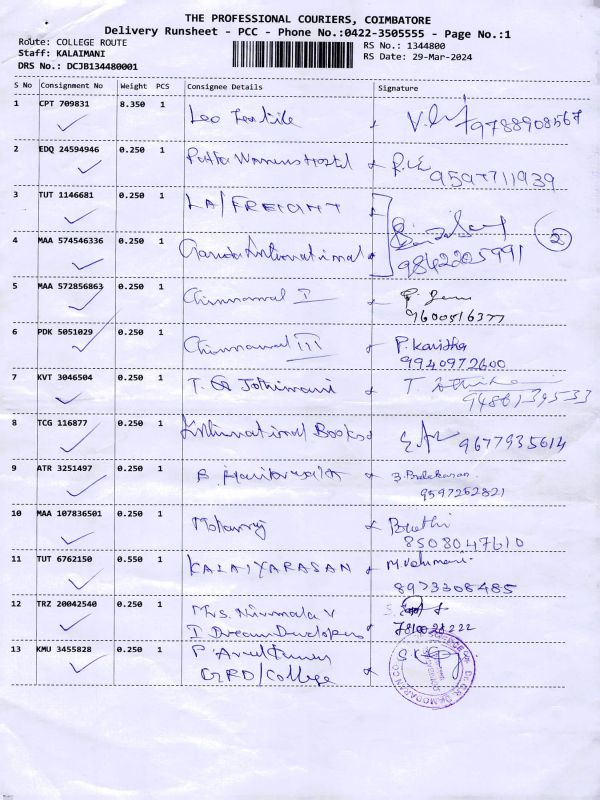 THE PROFESSIONAL COURIERS, COIMBATORE
Delivery Runsheet - PCC - Phone No.:0422-3505555 - Page No.:1
Route: COLLEGE ROUTE RS No.: 1344800
Staff: KALAIMANI RS Date: 29-Mar-2024
DRS No.: DCJB134480001
S No Consignment No Weight PCS Consignee Details Signature
1 CPT 709831 8.350 1 Leo Textile 9788908567
2 EDQ 24594946 0.250 1 Womens Hostel 9597711939
3 TUT 1146681 0.250 1 LA/FREIGHT
4 MAA 574546336 0.250 1 International 9842205991 2
5 MAA 572856863 0.250 1 Chinnamal I 9600516377
6 PDK 5051029 0.250 1 Chinnamal III P. Kavitha
9940972600
7 KVT 3046504 0.250 1 T. Jothimani
8 TCG 116877 0.250 1 International Books 9677935614
9 ATR 3251497 0.250 1 B.
9597262821
10 MAA 107836501 0.250 1
8508047610
11 TUT 6762150 0.550 1 KALAIYARASAN
8973308485
12 TRZ 20042540 0.250 1 Mrs. Nirmala V
I Dream Developers
13 KMU 3455828 0.250 1 P
GRD/College